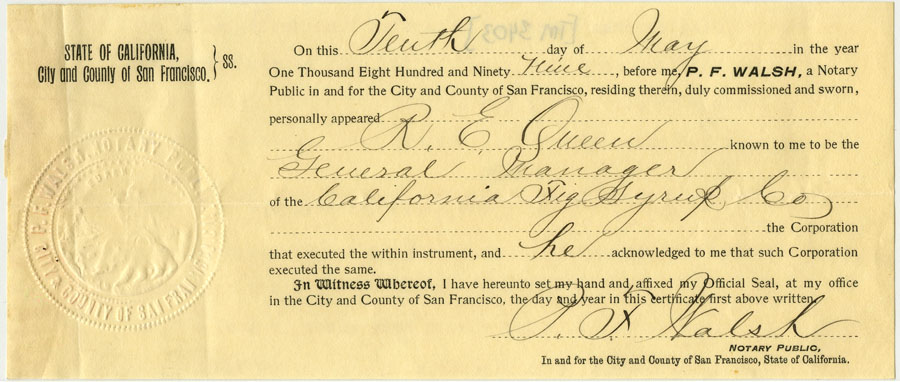 STATE OF CALIFORNIA,
City and County of San Francisco. } ss.
On this Tenth day of May in the year
One Thousand Eight Hundred and Ninety Nine, before me, P. F. WALSH, a Notary
Public in and for the City and County of San Francisco, residing therein, duly commissioned and sworn,
personally appeared R. E. Queen known to me to be the
General Manager
of the California Fig Syrup Co
the Corporation
that executed the within instrument, and he acknowledged to me that such Corporation
executed the same.
In Witness Whereof, I have hereunto set my hand and affixed my Official Seal, at my office
in the City and County of San Francisco, the day and year in this certificate first above written.
P. F. Walsh
NOTARY PUBLIC,
In and for the City and County of San Francisco, State of California.
P. F. WALSH, NOTARY PUBLIC
CITY & COUNTY OF SAN FRANCISCO